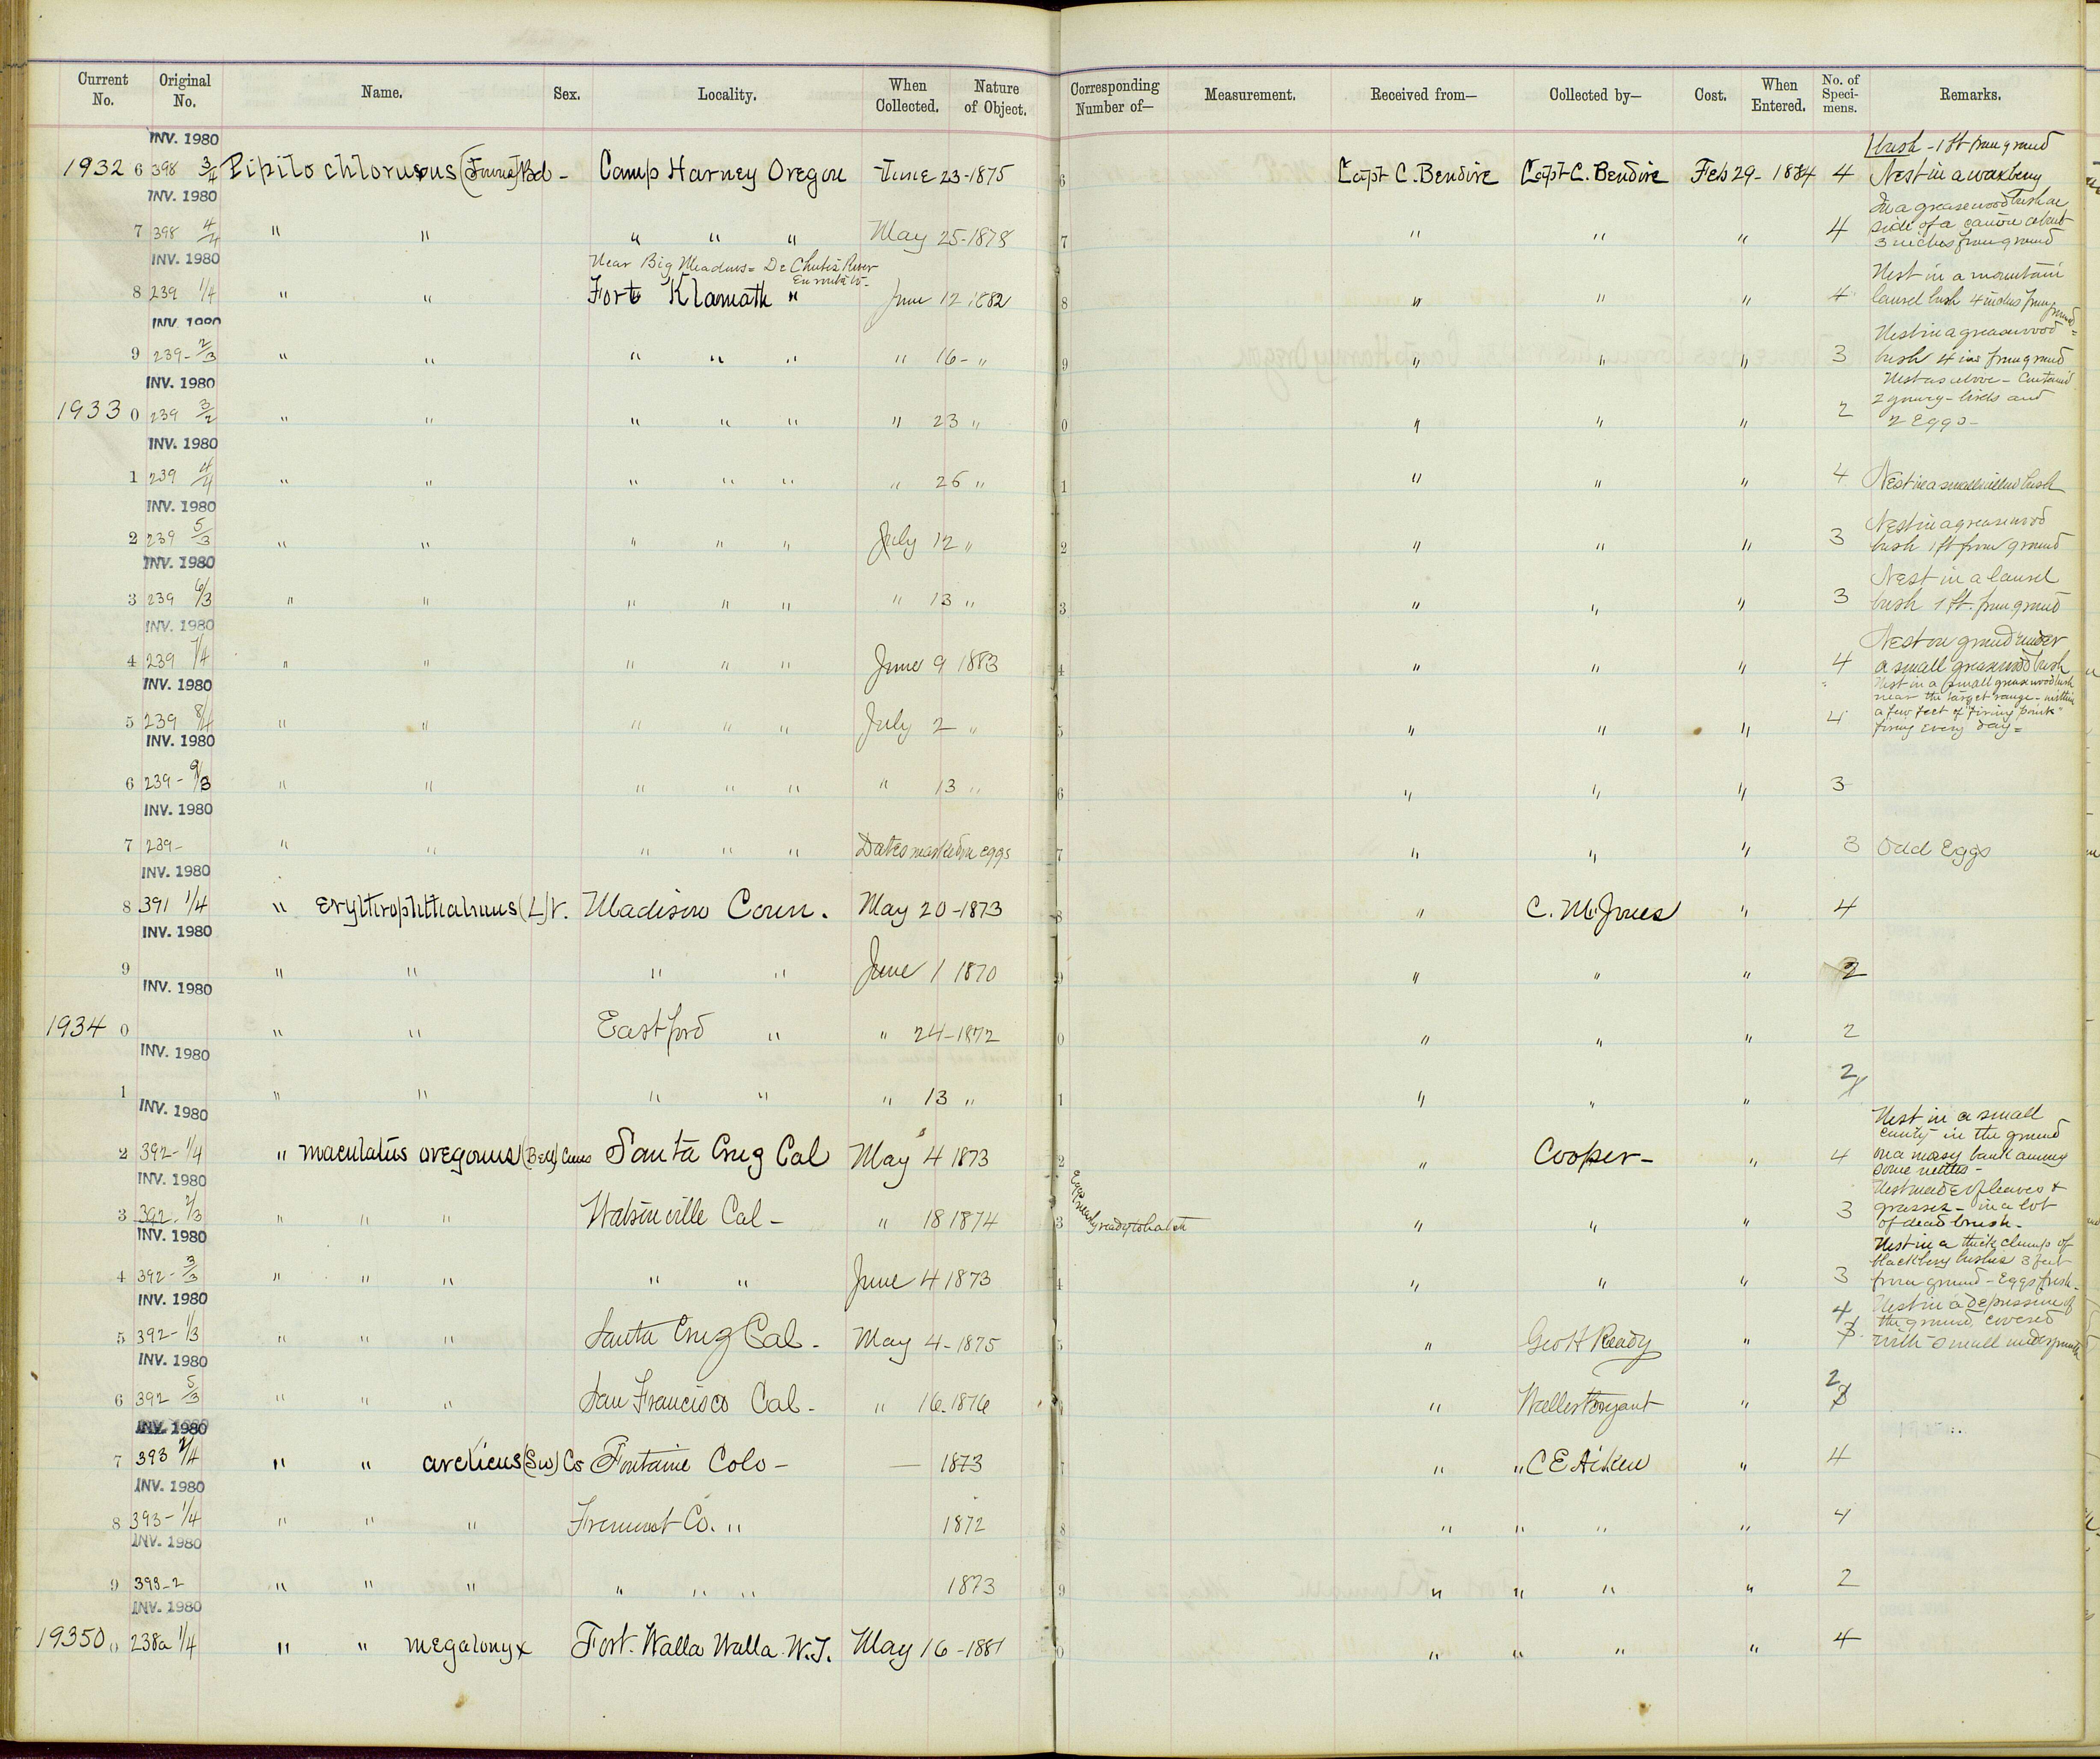 Current No. Original No. Name. Sex. Locality. When Collected. Nature of Object. Corresponding Number of— Measurement. Received from— Collected by— Cost. When Entered. No. of Speci-mens. Remarks.
INV. 1980
1932 6 398 3/4 Pipilo chlorurus Bd - Camp Harney Oregon June 23-1875 6 Capt C. Bendire Capt C. Bendire Feb 29- 1884 4 Nest in a waxberry
bush - 1 ft from ground
INV. 1980
7 398 4/4 " " " " " May 25-1878 7 " " " 4 In a greasewood bush on
side of a canon about
3 inches from ground
INV. 1980
Near Big Meadows = De Chutes River
8 239 1/4 " " Fort Klamath " June 12 1882 8 " " " 4 Nest in a mountain
laurel bush 4 inches from ground =
INV. 1980
9 239- 2/3 " " " " " " 16- " 9 " " " 3 Nest in a greasewood
bush 4 ins from ground
INV. 1980
1933 0 239 3/2 " " " " " " 23 " 0 " " " 2 Nest as above - Contained
2 young - birds and
2 Eggs -
INV. 1980
1 239 4/4 " " " " " " 26 " 1 " " " 4 Nest in a small willow bush
INV. 1980
2 239 5/3 " " " " " July 12 " 2 " " " 3 Nest in a greasewood
bush 1 ft from ground
INV. 1980
3 239 6/3 " " " " " " 13 " 3 " " " 3 Nest in a laurel
bush 1 ft. from ground
INV. 1980
4 239 7/4 " " " " " June 9 1883 4 " " " 4 Nest on ground under
a small greasewood bush
INV. 1980
5 239 8/4 " " " " " July 2 " 5 " " " 4 Nest in a small greasewood bush
near the target range - within
a few feet of firing point
firing every day =
INV. 1980
6 239- 9/3 " " " " " " 13 " 6 " " " 3
INV. 1980
7 239- " " " " " Dates marked on eggs 7 " " " 3 Odd Eggs
INV. 1980
8 391 1/4 " Erythrophthalmus (L) V. Madison Conn. May 20-1873 8 " C. M. Jones " 4
INV. 1980
9 " " " " June 1 1870 9 " " " 2
INV. 1980
1934 0 " " Eastford " " 24-1872 0 " " " 2
INV. 1980
1 " " " " " 13 " 1 " " " 2
INV. 1980
2 392- 1/4 " maculatus oregonus (Bell) Coues Santa Cruz Cal May 4 1873 2 " Cooper- " 4 Nest in a small
cavity in the ground
on a mossy bank among
some nettles -
INV. 1980
3 392. 2/3 " " " Watsonville Cal - " 18 1874 3 Eggs nearly ready to hatch " " " 3 Nest made of leaves &
grasses - in a lot
of dead brush.
INV. 1980
4 392- 3/3 " " " " " June 4 1873 4 " " " 3 Nest in a thick clump of
blackberry bushes 3 feet
from ground - Eggs fresh -
INV. 1980
5 392- 1/3 " " " Santa Cruz Cal - May 4-1875 5 " Geo H Ready " 4 Nest in a depression of
the ground, covered
with small
INV. 1980
6 392 5/3 " " " San Francisco Cal - " 16. 1876 " Bryant " 2
INV. 1980
7 393 2/4 " " arcticus (Sw) Cs Fontaine Colo - — 1873 7 " " C E Aiken " 4
INV. 1980
8 393- 1/4 " " " Fremont Co. " 1872 8 " " " " 4
INV. 1980
9 393-2 " " " " " " 1873 9 " " " " 2
INV. 1980
19350 0 238a 1/4 " " megalonyx Fort. Walla Walla. W.T. May 16-1881 0 " " " " 4